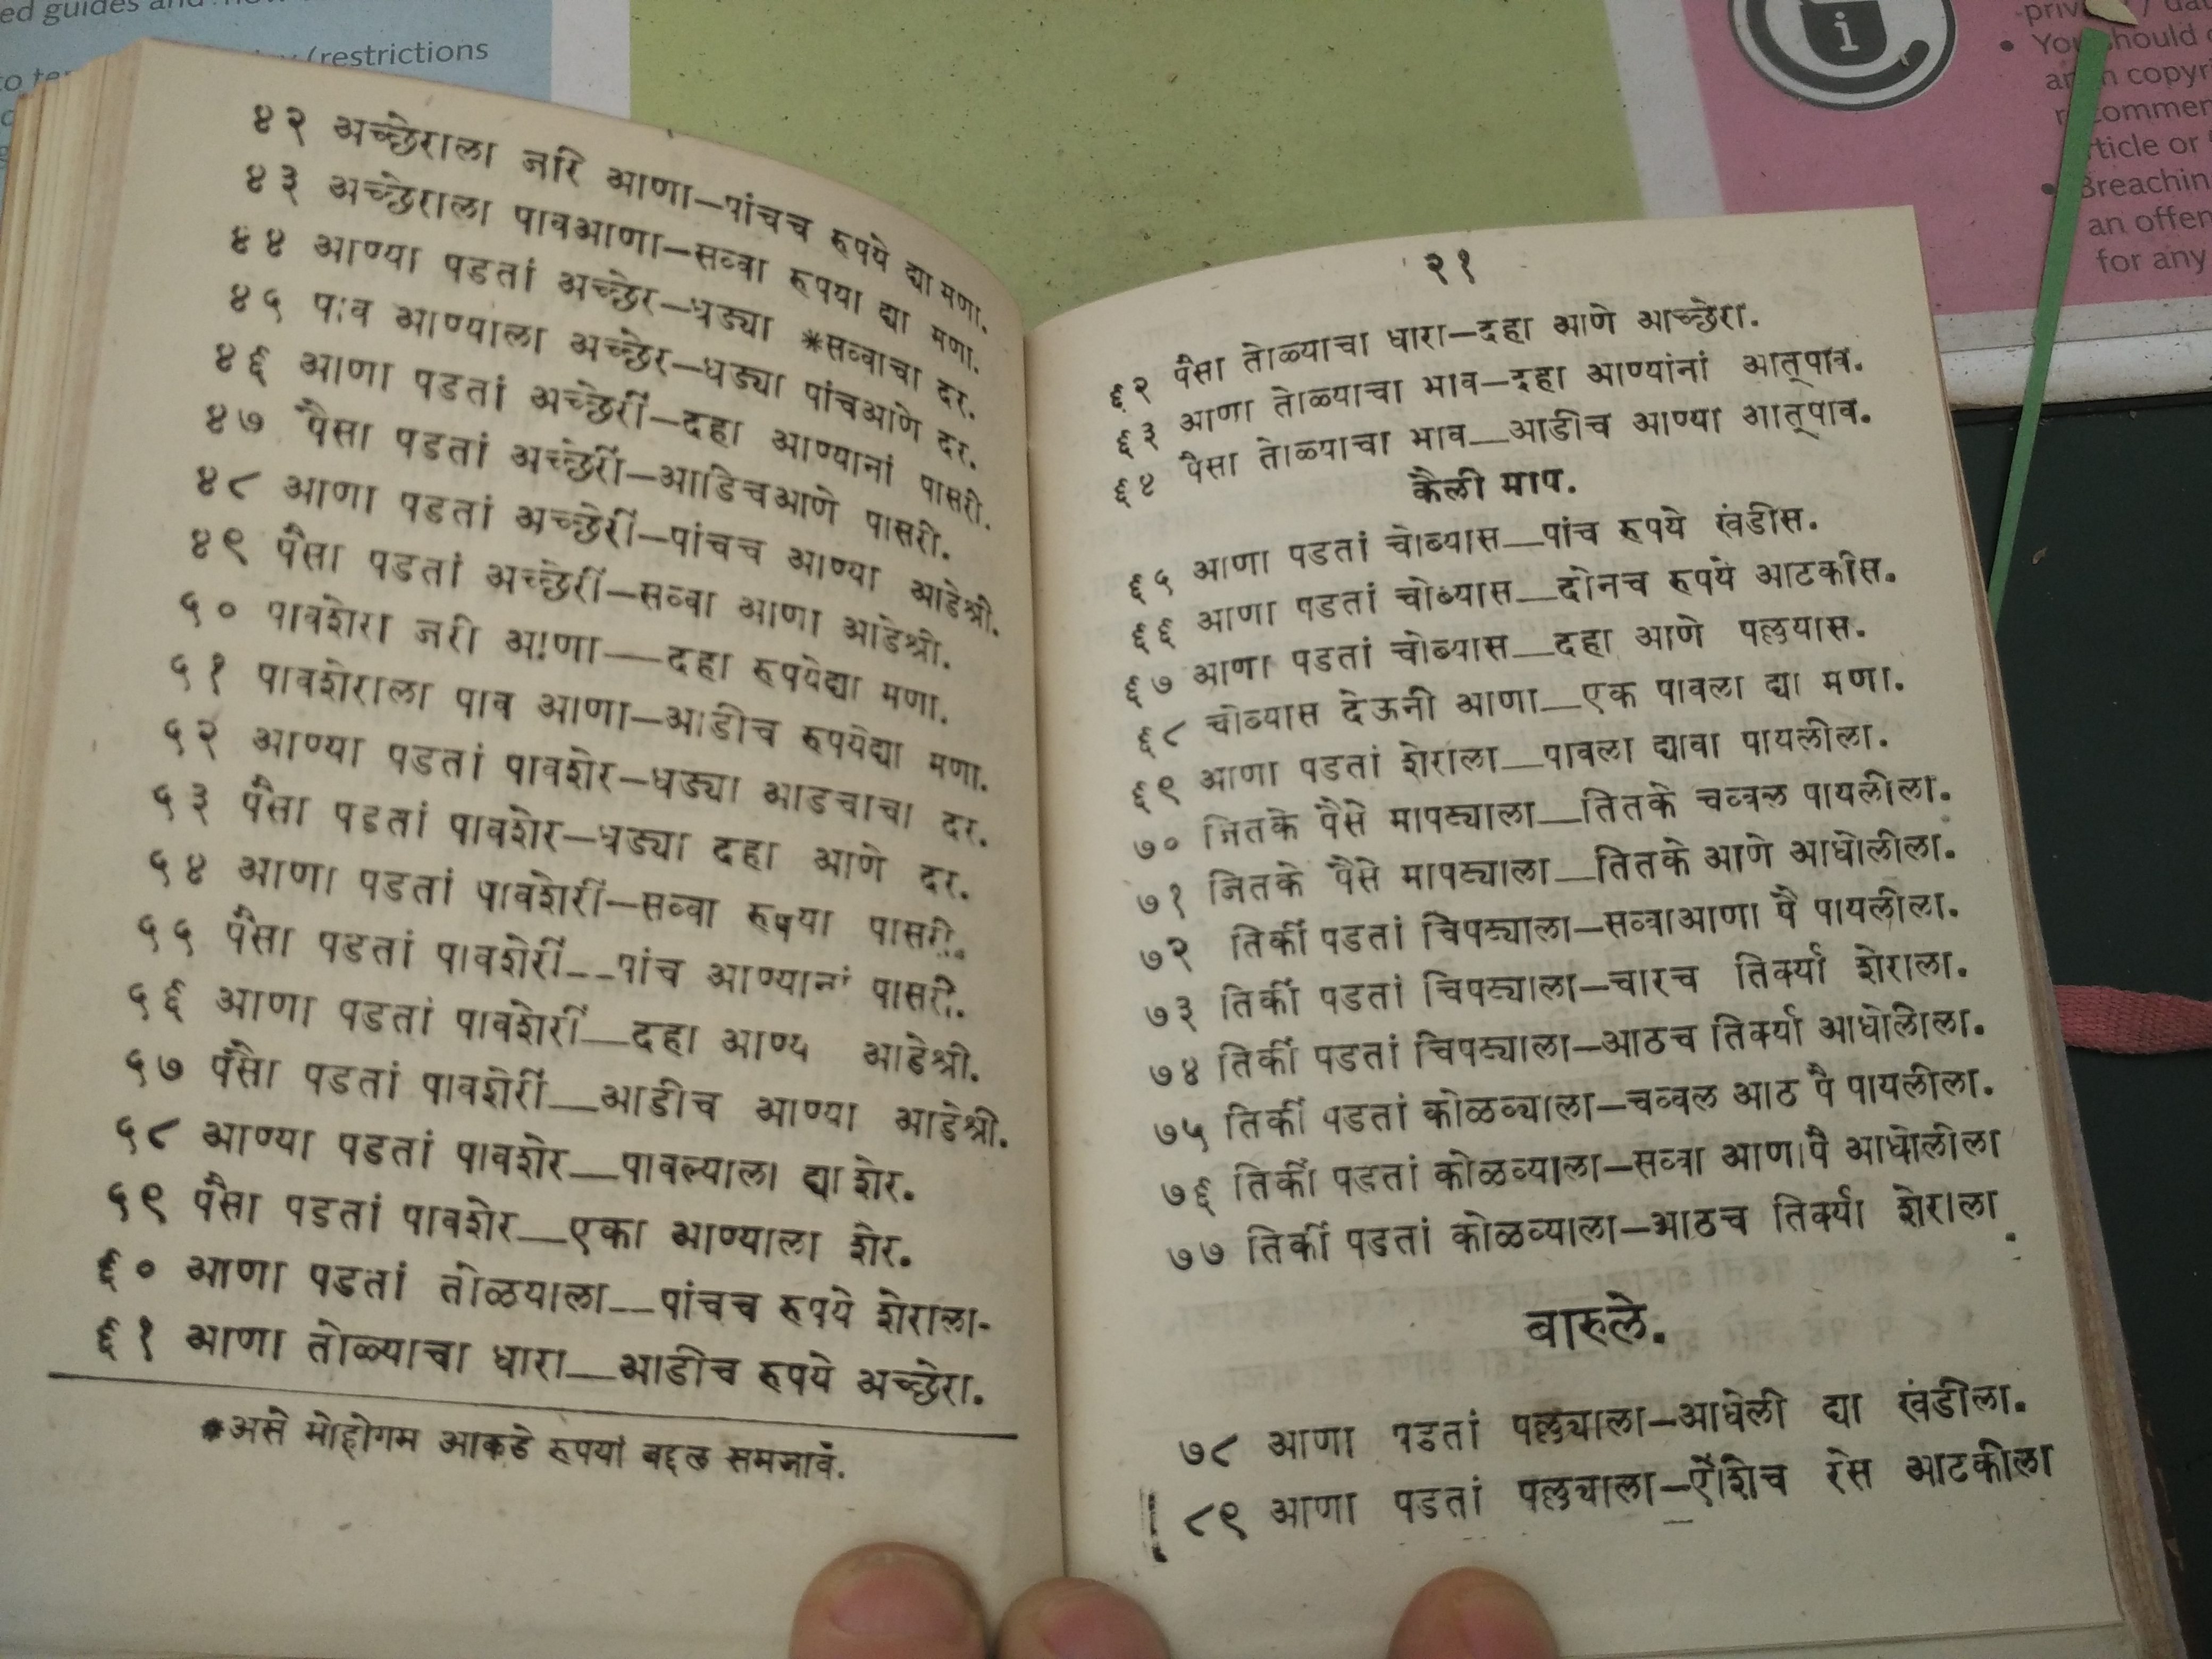 ed guides and how
(restrictions
४२ अच्छेराला जरि आणा—पांचच रुपये द्या मणा.
४३ अच्छेराला पावआणा—सव्वा रुपया द्या मणा.
४४ आण्या पडतां अच्छेर—धड्या *सव्वाचा दर.
४५ पाव आण्याला अच्छेर—धड्या पांचआणे दर.
४६ आणा पडतां अच्छेरीं—दहा आण्यानां पासरी.
४७ पैसा पडतां अच्छेरीं—आडिचआणे पासरी.
४८ आणा पडतां अच्छेरीं—पांचच आण्या आडेश्री.
४९ पैसा पडतां अच्छेरीं—सव्वा आणा आडेश्री.
५० पावशेरा जरी आणा—दहा रुपयेद्या मणा.
५१ पावशेराला पाव आणा—आडीच रुपयेद्या मणा.
५२ आण्या पडतां पावशेर—धड्या आडचाचा दर.
५३ पैसा पडतां पावशेर—धड्या दहा आणे दर.
५४ आणा पडतां पावशेरीं—सव्वा रुपया पासरी.
५५ पैसा पडतां पावशेरीं—पांच आण्यानां पासरी.
५६ आणा पडतां पावशेरीं—दहा आण्य आडेश्री.
५७ पैसा पडतां पावशेरीं—आडीच आण्या आडेश्री.
५८ आण्या पडतां पावशेर—पावल्याला द्या शेर.
५९ पैसा पडतां पावशेर—एका आण्याला शेर.
६० आणा पडतां तोळयाला—पांचच रुपये शेराला-
६१ आणा तोळ्याचा धारा—आडीच रुपये अच्छेरा.
*असे मोहोगम आकडे रुपयां बद्दल समजावें.
२१
६२ पैसा तोळ्याचा धारा—दहा आणे आच्छेरा.
६३ आणा तोळ्याचा भाव—दहा आण्यांनां आत्पाव.
६४ पैसा तोळ्याचा भाव—आडीच आण्या आत्पाव.
कैली माप.
६५ आणा पडतां चोथ्यास—पांच रुपये खंडीस.
६६ आणा पडतां चोथ्यास—दोनच रुपये आटकीस.
६७ आणा पडतां चोथ्यास—दहा आणे पल्लुयास.
६८ चोथ्यास देऊनी आणा—एक पावला द्या मणा.
६९ आणा पडतां शेराला—पावला द्यावा पायलीला.
७० जितके पैसे मापट्याला—तितके चव्वल पायलीला.
७१ जितके पैसे मापट्याला—तितके आणे आधोलीला.
७२ तिर्की पडतां चिपट्याला—सव्वाआणा पै पायलीला.
७३ तिर्की पडतां चिपट्याला—चारच तिर्क्या शेराला.
७४ तिर्की पडतां चिपट्याला—आठच तिर्क्या आधोलीला.
७५ तिर्की पडतां कोळव्याला—चव्वल आठ पै पायलीला.
७६ तिर्की पडतां कोळव्याला—सव्वा आणा पै आधोलीला
७७ तिर्की पडतां कोळव्याला—आठच तिर्क्या शेराला.
बारुले.
७८ आणा पडतां पल्लुयाला—आधेली द्या खंडीला.
८९ आणा पडतां पल्लुयाला—ऐंशिच रेस आटकीला
i
You should
copyri
recommen
rticle or
Breachin
an offen
for any